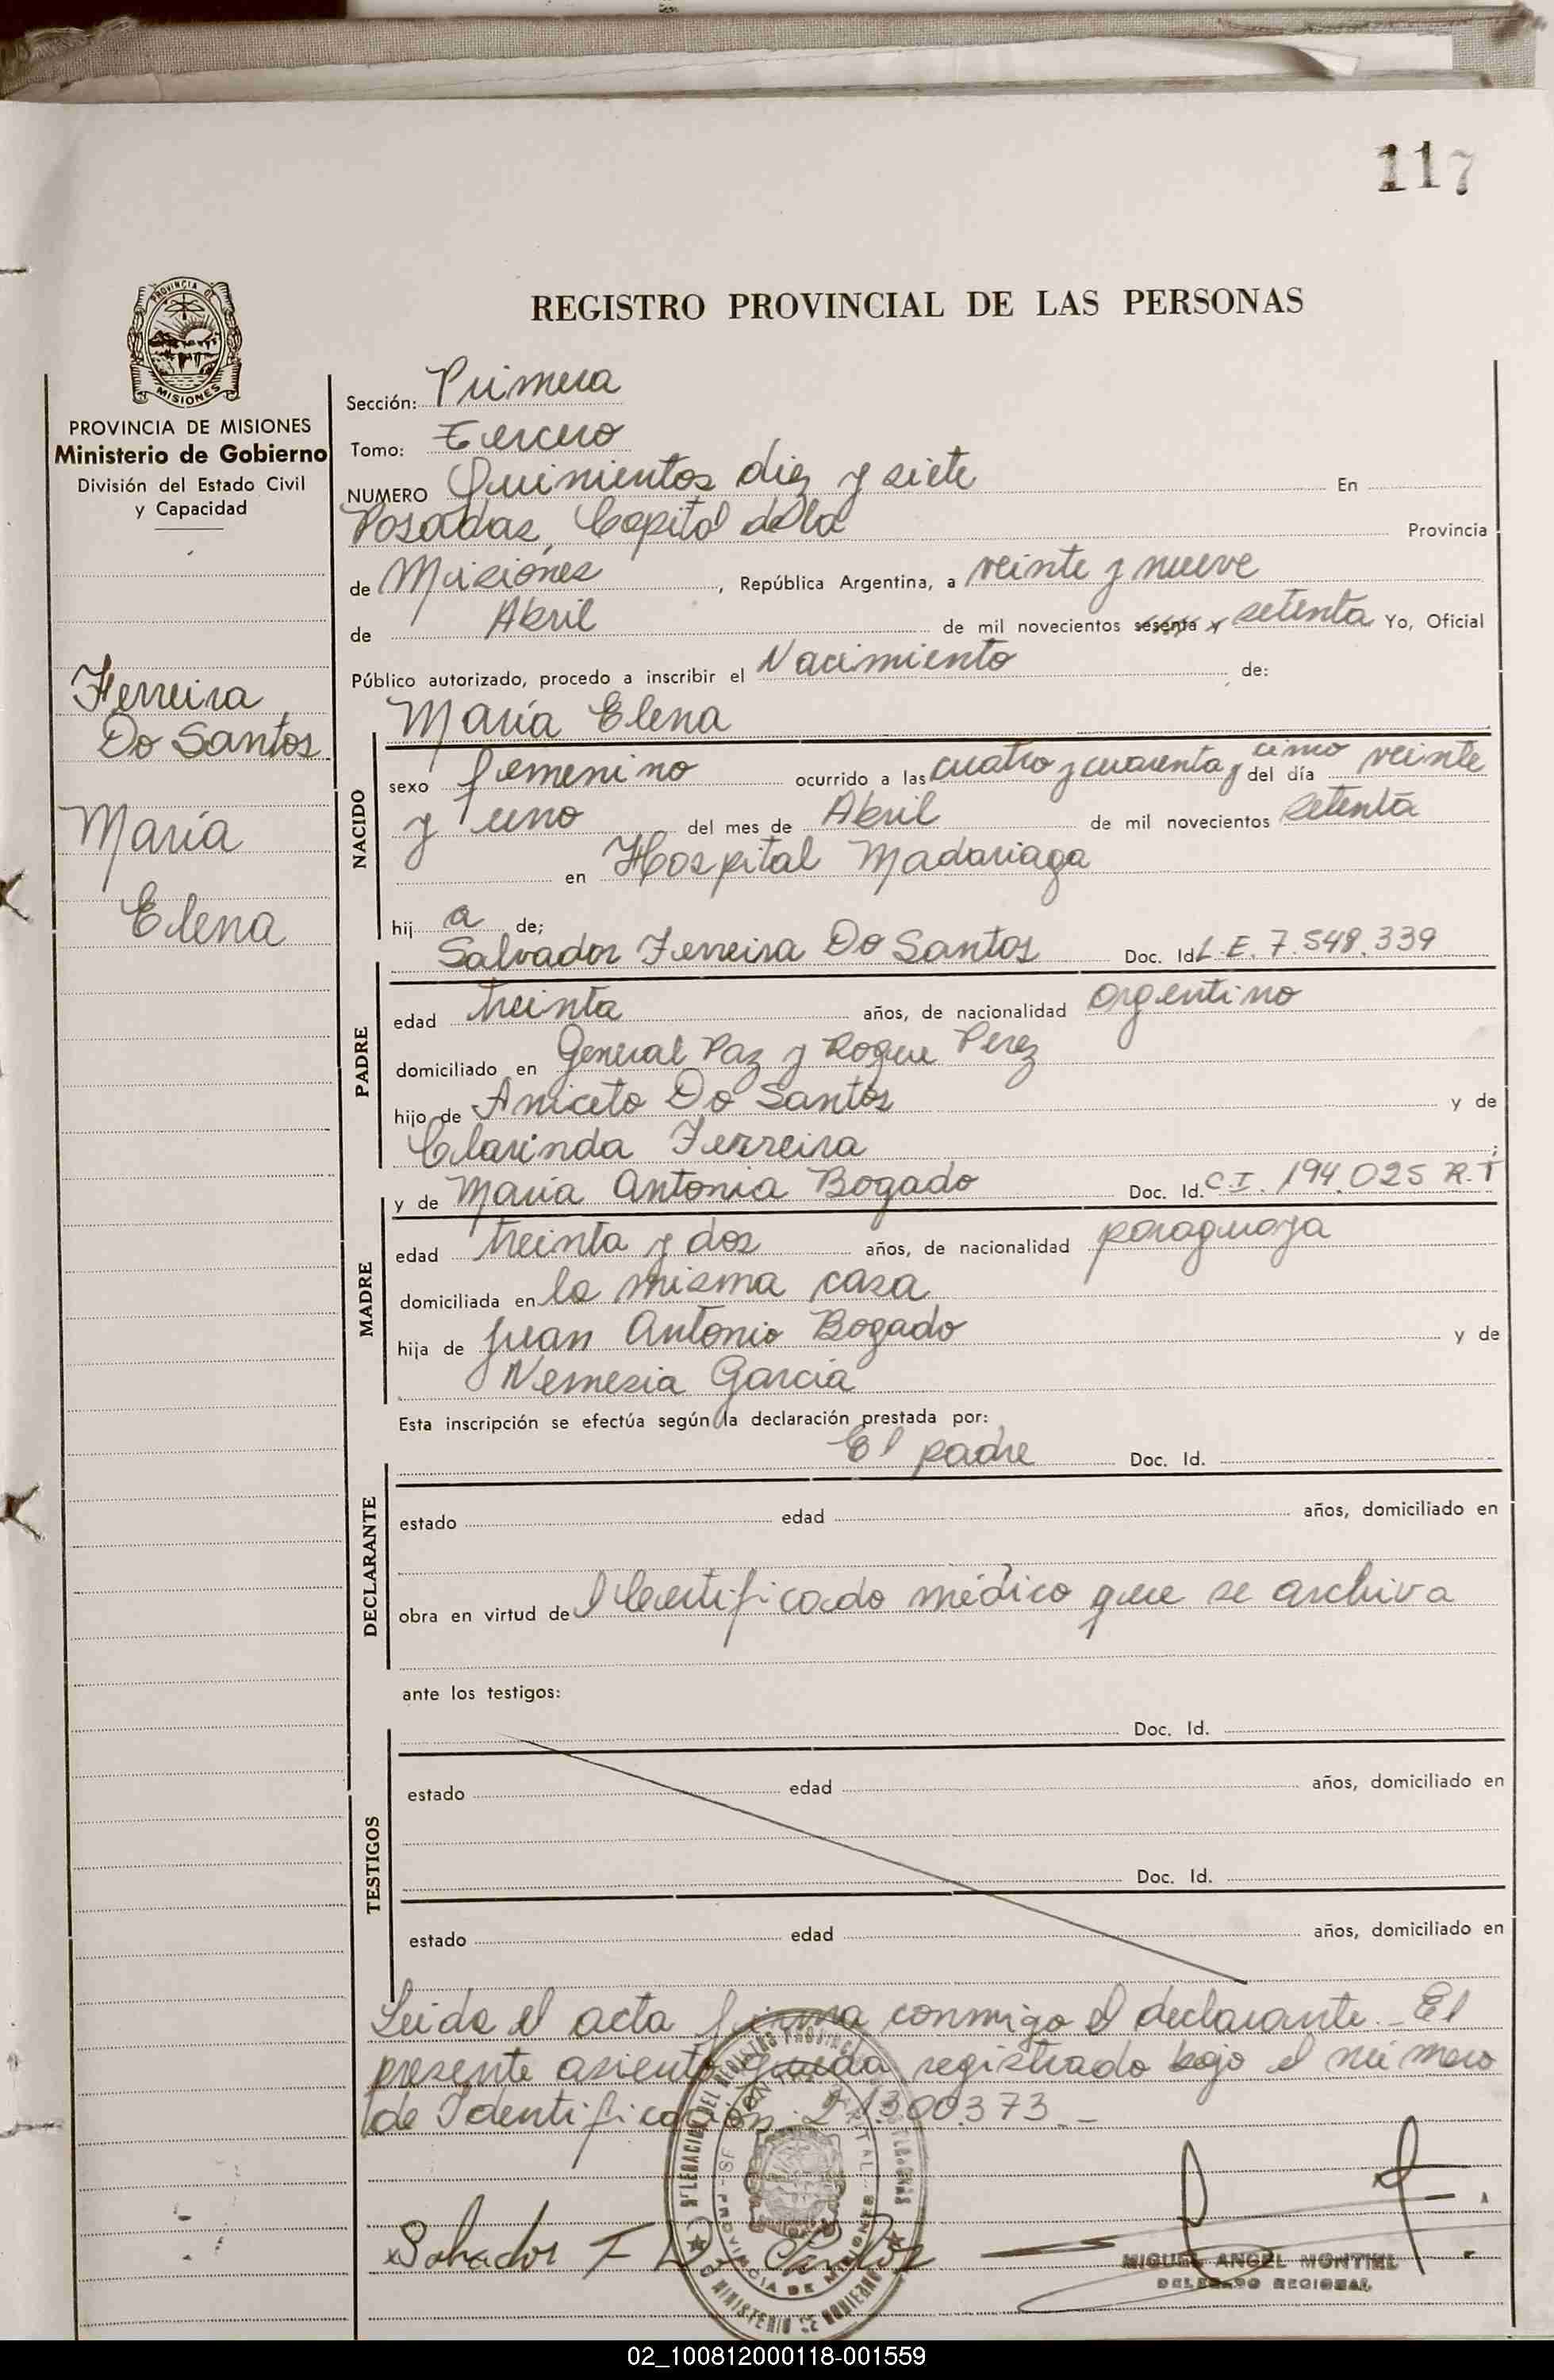 117
PROVINCIA DE
MISIONES
PROVINCIA DE MISIONES
Ministerio de Gobierno
División del Estado Civil
y Capacidad
Ferreira
Do Santos
María
Elena
REGISTRO PROVINCIAL DE LAS PERSONAS
Sección: Primera
Tomo: Tercero
NUMERO Quinientos diez y siete En
Posadas, Capital de la Provincia
de Misiones, República Argentina, a veinte y nueve
de Abril de mil novecientos sesenta y setenta Yo, Oficial
Público autorizado, procedo a inscribir el Nacimiento de:
María Elena
NACIDO
sexo femenino ocurrido a las cuatro y cuarenta y cinco del día veinte
y uno del mes de Abril de mil novecientos setenta
en Hospital Madariaga
hij a de;
Salvador Ferreira Do Santos Doc. Id. L.E. 7.548.339
PADRE
edad treinta años, de nacionalidad argentino
domiciliado en General Paz y Roque Perez
hijo de Aniceto Do Santos y de
Clarinda Ferreira ;
y de María Antonia Bogado Doc. Id. C.I. 194.025 R.T
MADRE
edad treinta y dos años, de nacionalidad paraguaya
domiciliada en la misma casa
hija de Juan Antonio Bogado y de
Nemesia García
Esta inscripción se efectúa según la declaración prestada por:
El padre Doc. Id.
DECLARANTE
estado edad años, domiciliado en
obra en virtud de l Certificado médico que se archiva
ante los testigos:
Doc. Id.
TESTIGOS
estado edad años, domiciliado en
Doc. Id.
estado edad años, domiciliado en
Leida el acta firma conmigo el declarante._ El
presente asiento queda registrado bajo el número
de Identificación: 21.300.373_ _
Salvador F D Santos
MIGUEL ANGEL MONTIEL
DELEGADO REGIONAL
02_100812000118-001559